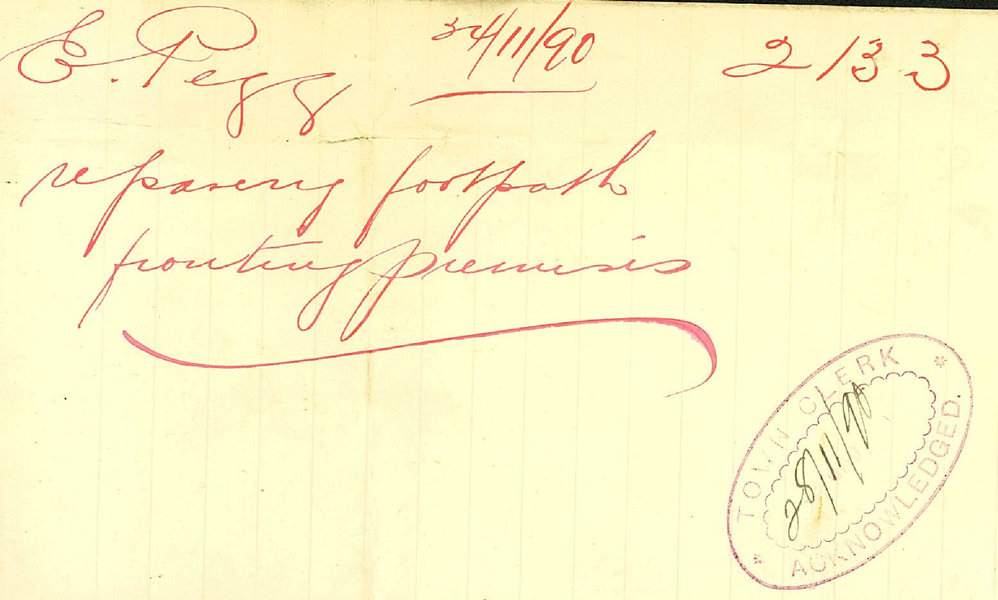 E. Pegg 24/11/90 2133
repairing footpath
fronting premises
TOWN CLERK
28/11/90
ACKNOWLEDGED.